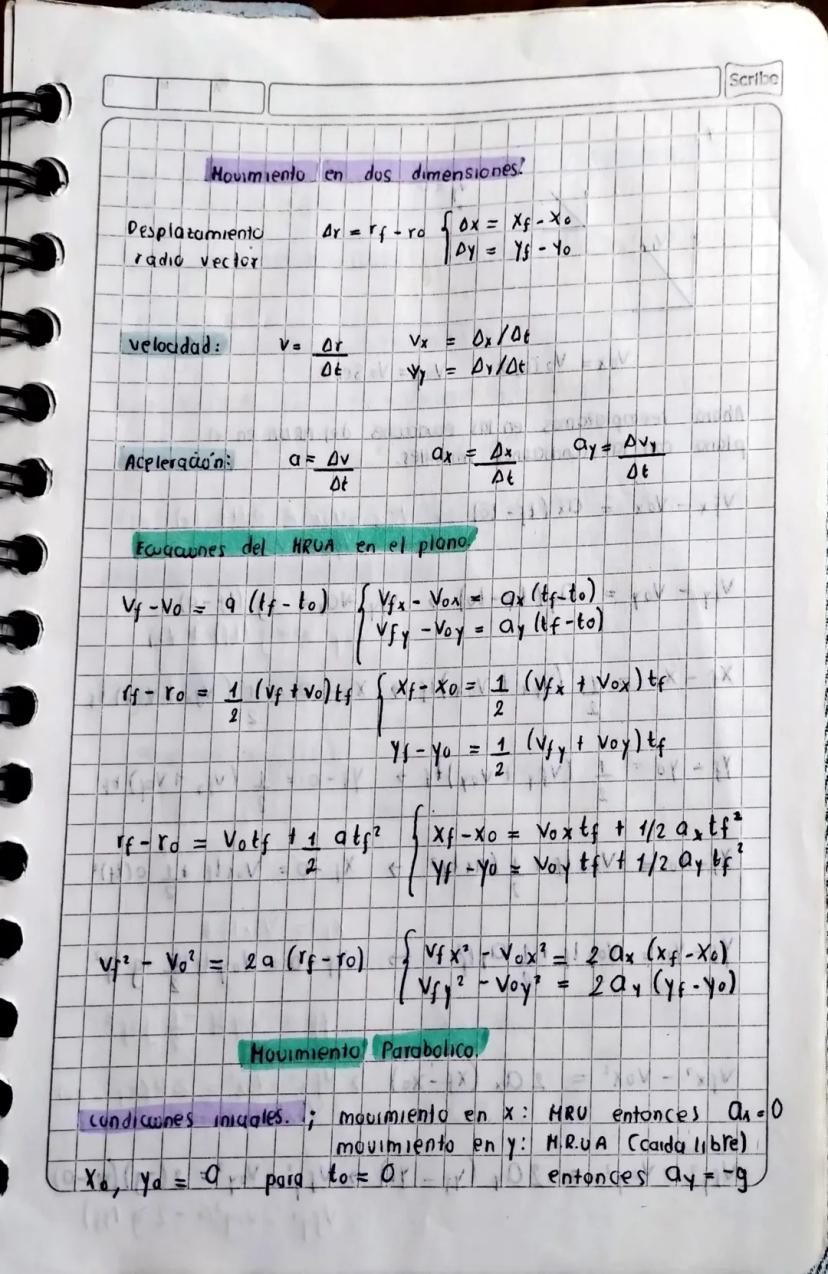 Scribe
Movimiento en dos dimensiones.
Desplazamiento radio vector Δr = rf - ro { Δx = xf - xo
Δy = yf - yo
Velocidad: v = Δr/Δt vx = Δx/Δt
vy = Δy/Δt
Aceleración: a = Δv/Δt ax = Δx/Δt ay = Δvy/Δt
Ecuaciones del MRUA en el plano
Vf - Vo = a (tf - to) { Vfx - Vox = ax (tf - to)
Vfy - Voy = ay (tf - to)
rf - ro = 1/2 (vf + vo) tf { xf - xo = 1/2 (Vfx + Vox) tf
yf - yo = 1/2 (Vfy + Voy) tf
rf - ro = Votf + 1/2 atf² { xf - xo = Vox tf + 1/2 ax tf²
yf - yo = Voy tf + 1/2 ay tf²
Vf² - Vo² = 2a (rf - ro) { Vfx² - Vox² = 2 ax (xf - xo)
Vfy² - Voy² = 2 ay (yf - yo)
Movimiento Parabolico.
condiciones iniciales. ; movimiento en x: MRU entonces ax = 0
movimiento en y: M.R.U.A (caida libre)
Xo, yo = 0 para to = 0 entonces ay = -g